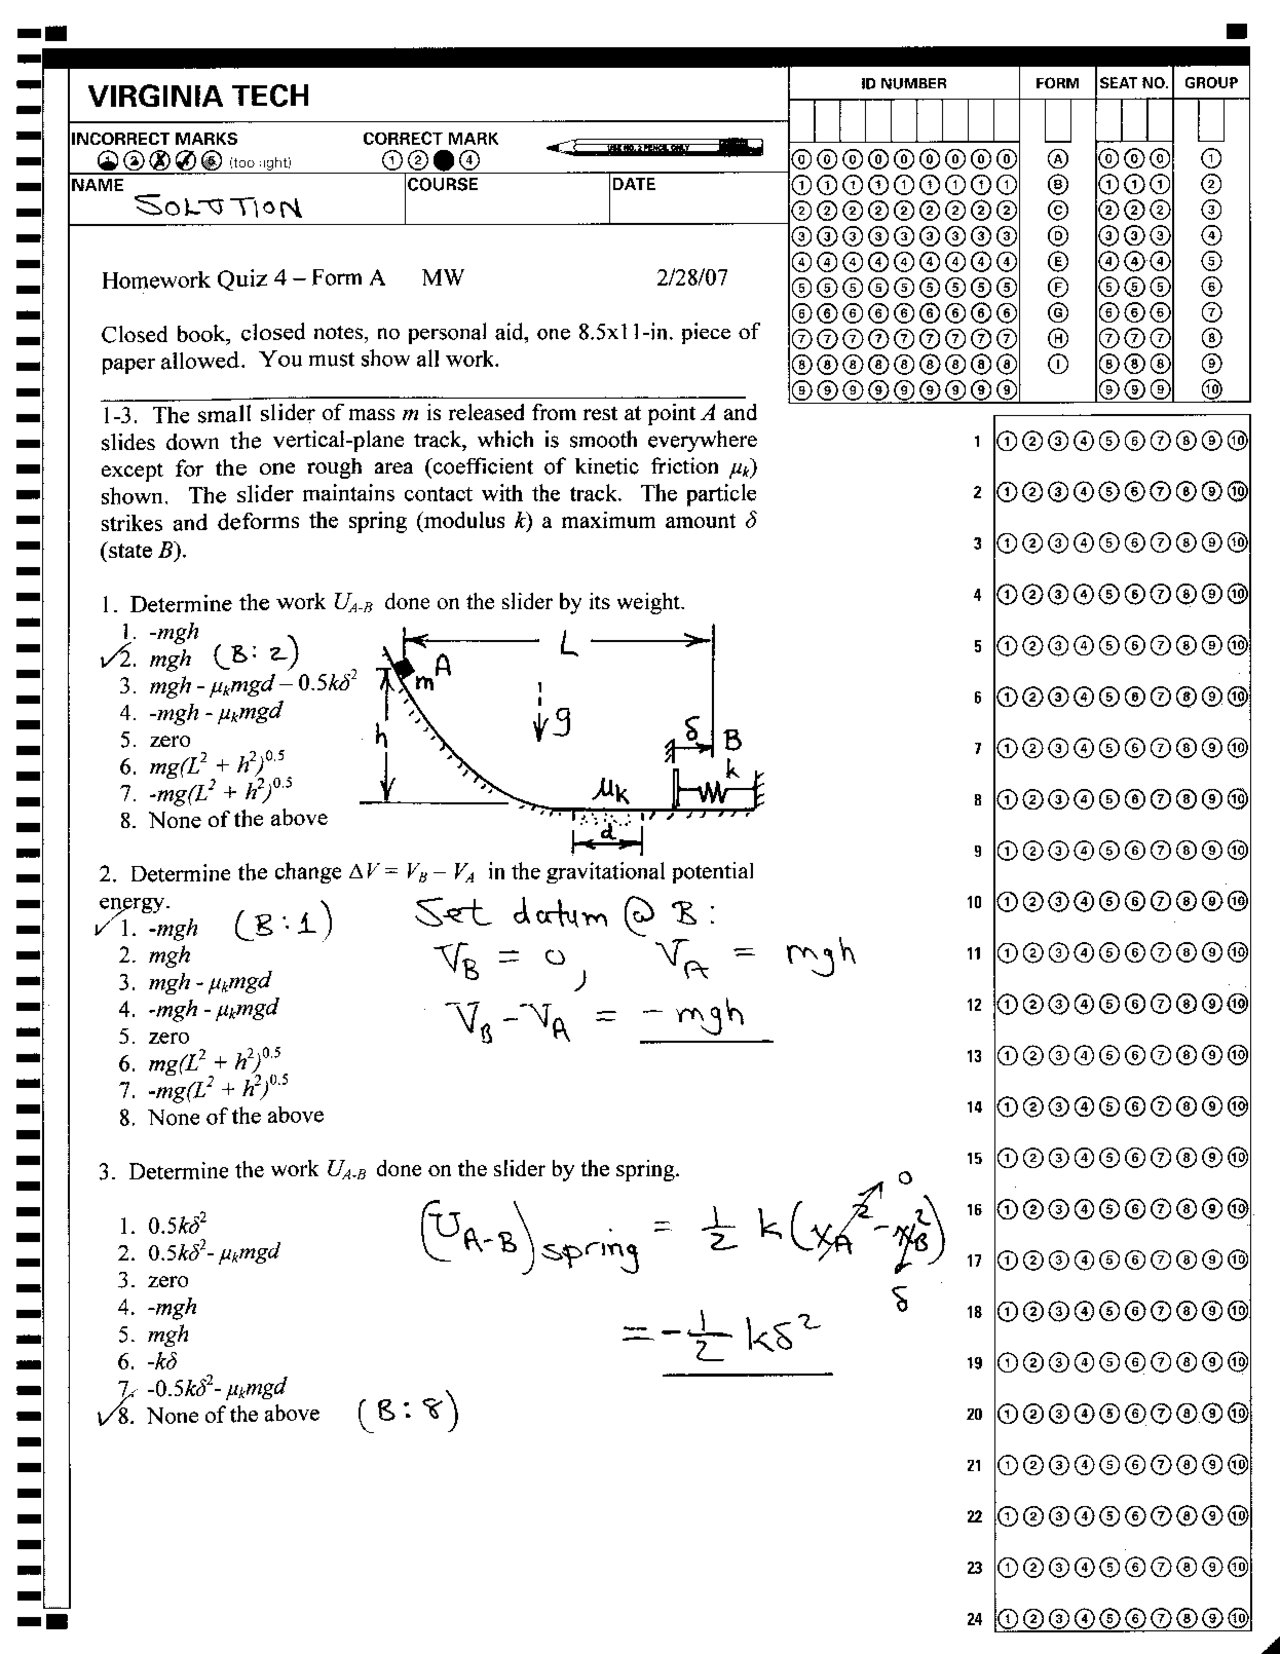 VIRGINIA TECH
INCORRECT MARKS
CORRECT MARK
(too light)
1 2 4
USE NO. 2 PENCIL ONLY
NAME
COURSE
DATE
SOLUTION
ID NUMBER
FORM
SEAT NO.
GROUP
0 0 0 0 0 0 0 0 0 A 0 0 0 1
1 1 1 1 1 1 1 1 1 B 1 1 1 2
2 2 2 2 2 2 2 2 2 C 2 2 2 3
3 3 3 3 3 3 3 3 3 D 3 3 3 4
4 4 4 4 4 4 4 4 4 E 4 4 4 5
5 5 5 5 5 5 5 5 5 F 5 5 5 6
6 6 6 6 6 6 6 6 6 G 6 6 6 7
7 7 7 7 7 7 7 7 7 H 7 7 7 8
8 8 8 8 8 8 8 8 8 I 8 8 8 9
9 9 9 9 9 9 9 9 9 9 9 9 10
Homework Quiz 4 – Form A MW 2/28/07
Closed book, closed notes, no personal aid, one 8.5x11-in. piece of
paper allowed. You must show all work.
1-3. The small slider of mass m is released from rest at point A and
slides down the vertical-plane track, which is smooth everywhere
except for the one rough area (coefficient of kinetic friction μk)
shown. The slider maintains contact with the track. The particle
strikes and deforms the spring (modulus k) a maximum amount δ
(state B).
1. Determine the work U_A-B done on the slider by its weight.
1. -mgh
✓2. mgh (B: 2)
3. mgh - μkmgd – 0.5kδ²
4. -mgh - μkmgd
5. zero
6. mg(L² + h²)^0.5
7. -mg(L² + h²)^0.5
8. None of the above
L
A
m
g
h
δ
B
k
μk
d
2. Determine the change ΔV = V_B – V_A in the gravitational potential
energy.
✓1. -mgh (B:1)
2. mgh
3. mgh - μkmgd
4. -mgh - μkmgd
5. zero
6. mg(L² + h²)^0.5
7. -mg(L² + h²)^0.5
8. None of the above
Set datum @ B:
V_B = 0, V_A = mgh
V_B - V_A = -mgh
3. Determine the work U_A-B done on the slider by the spring.
1. 0.5kδ²
2. 0.5kδ²- μkmgd
3. zero
4. -mgh
5. mgh
6. -kδ
7. -0.5kδ²- μkmgd
✓8. None of the above (B:8)
(U_A-B)spring = 1/2 k(x_A² - x_B²)
0
δ
= -1/2 kδ²
1 1 2 3 4 5 6 7 8 9 10
2 1 2 3 4 5 6 7 8 9 10
3 1 2 3 4 5 6 7 8 9 10
4 1 2 3 4 5 6 7 8 9 10
5 1 2 3 4 5 6 7 8 9 10
6 1 2 3 4 5 6 7 8 9 10
7 1 2 3 4 5 6 7 8 9 10
8 1 2 3 4 5 6 7 8 9 10
9 1 2 3 4 5 6 7 8 9 10
10 1 2 3 4 5 6 7 8 9 10
11 1 2 3 4 5 6 7 8 9 10
12 1 2 3 4 5 6 7 8 9 10
13 1 2 3 4 5 6 7 8 9 10
14 1 2 3 4 5 6 7 8 9 10
15 1 2 3 4 5 6 7 8 9 10
16 1 2 3 4 5 6 7 8 9 10
17 1 2 3 4 5 6 7 8 9 10
18 1 2 3 4 5 6 7 8 9 10
19 1 2 3 4 5 6 7 8 9 10
20 1 2 3 4 5 6 7 8 9 10
21 1 2 3 4 5 6 7 8 9 10
22 1 2 3 4 5 6 7 8 9 10
23 1 2 3 4 5 6 7 8 9 10
24 1 2 3 4 5 6 7 8 9 10